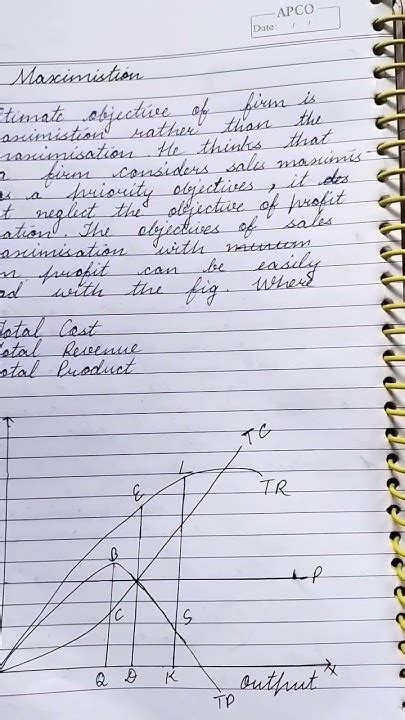 APCO
Date: / /
Maximistion
timate objective of firm is
aximistion rather than the
maximisation. He thinks that
a firm considers sales maximis
as a priority objectives, it does
t neglect the objective of profit
ation. The objectives of sales
aximisation with
m profit can be easily
ad with the fig. Where
Total Cost
Total Revenue
otal Product
TC
L
E
TR
B
P
C
S
Q D K output X
TP